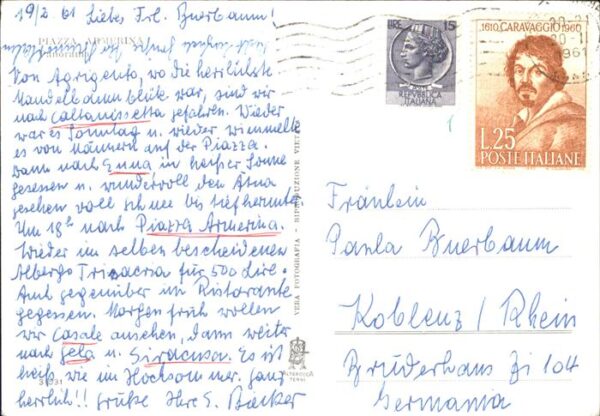 19/2. 61 Liebes Frl. Buerbaum!
PIAZZA ARMERINA
Panorama
Von Agrigento, wo die herrlichste
Mandelbaumblüte war, sind wir
nach Caltanissetta gefahren. Wieder
war es Sonntag u. wieder wimmelte
es von Männern auf der Piazza.
Dann nach Enna in heißer Sonne
gesessen u. wundervoll den Ätna
gesehen voll Schnee bis tief herunter.
Um 18h nach Piazza Armerina.
Wieder im selben bescheidenen
Albergo Trinacria für 500 Lire.
Auch gegenüber im Ristorante
gegessen. Morgen früh wollen
wir Casale ansehen, dann weiter
nach Gela u. Siracusa. Es ist
heiß wie im Hochsommer. Ganz
herrlich!! Grüße Ihre E. Backer
VERA FOTOGRAFIA - RIPRODUZIONE VIETATA
ALTEROCCA
TERNI
15
REPVBBLICA
ITALIANA
1610 CARAVAGGIO 1960
L.25
POSTE ITALIANE
1961
1
Fräulein
Paula Buerbaum
Koblenz / Rhein
Brüderhaus Zi 104
Germania